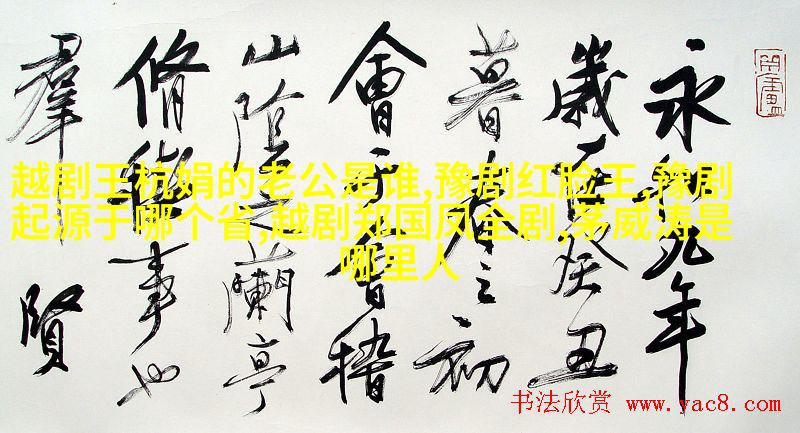 永和九年
歲在癸丑
暮春之初
會于會稽
山陰之蘭亭
脩禊事也
羣賢
越剧王杭娟的老公是谁,豫剧红脸王,豫剧
起源于哪个省,越剧郑国凤全剧,茅威涛是
哪里人
书法欣赏 www.yac8.com